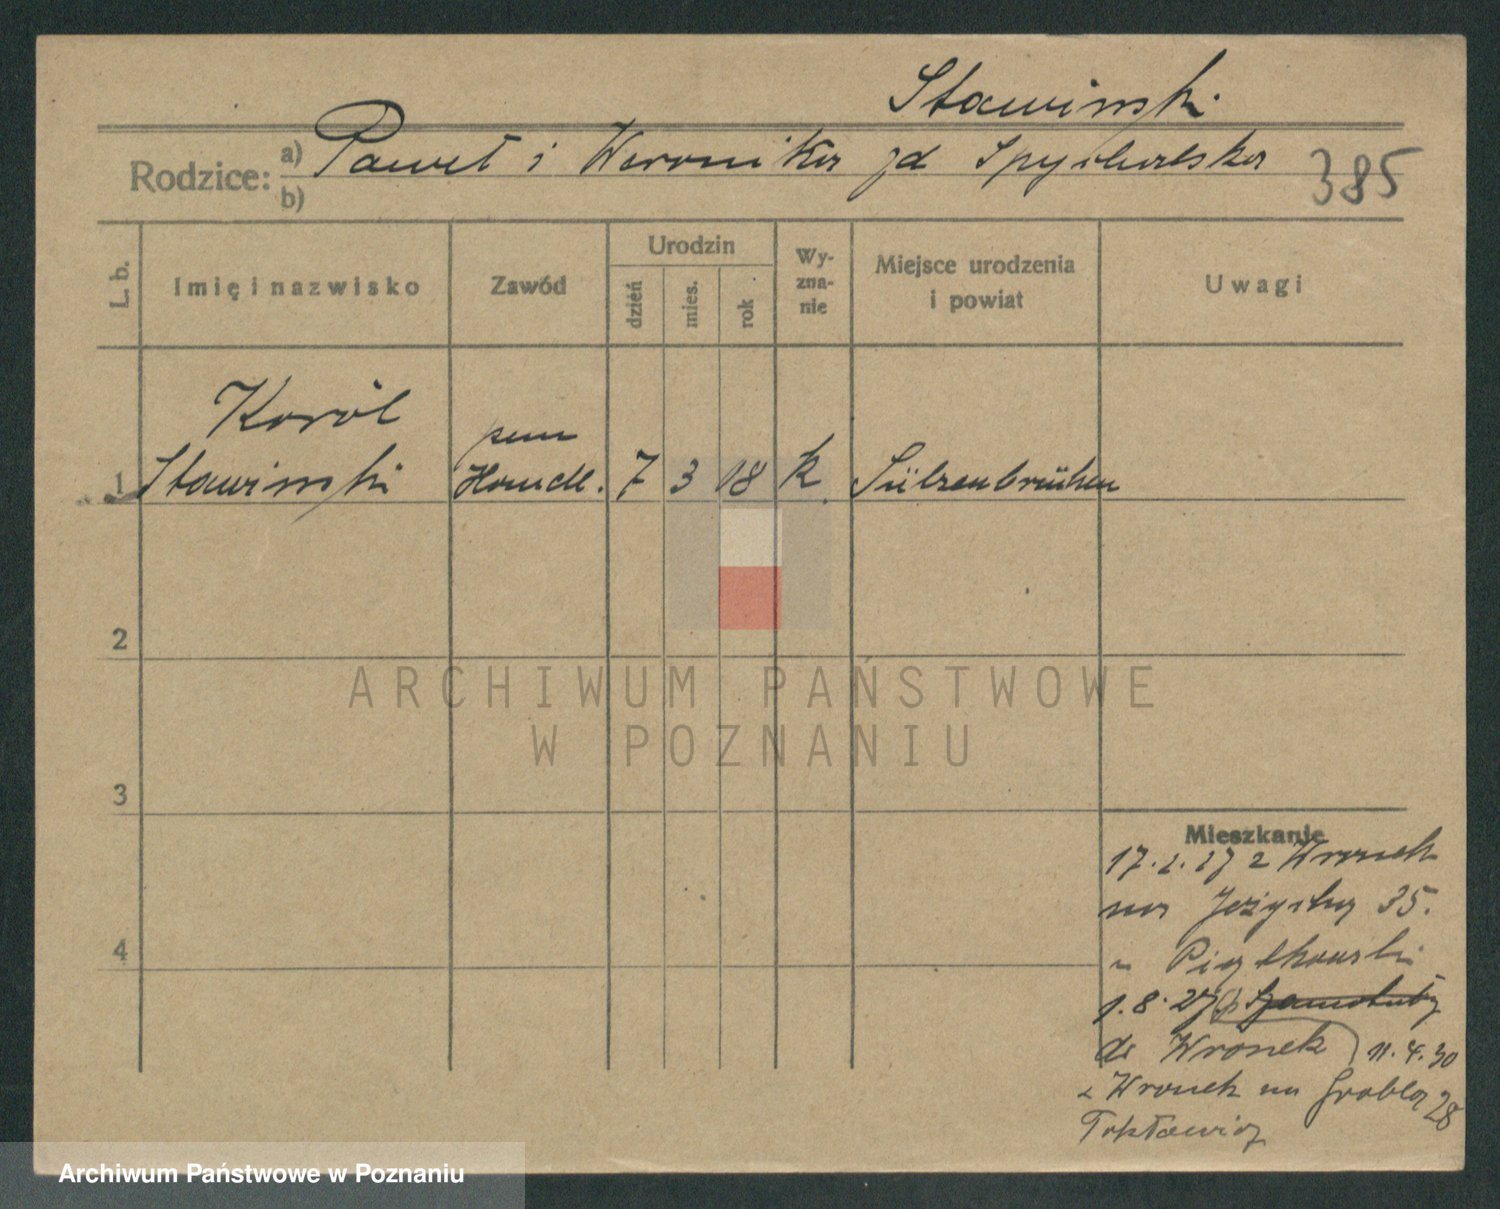 Stawinski
Rodzice: a) Paweł i Weronika zd Spychalska
b)
385
L. b. Imię i nazwisko Zawód Urodzin dzień mies. rok Wy-zna-nie Miejsce urodzenia i powiat Uwagi
Karol
1 Stawinski pom Handl. 7 3 18 k. Sülzenbrücken
2
ARCHIWUM PAŃSTWOWE
W POZNANIU
3
Mieszkanie
17. 27 z Wronek
na 35.
" Piątkowski
1.8.27 Szamotuły
do Wronek 11.4.30
z Wronek na Grobla 28
4
Archiwum Państwowe w Poznaniu